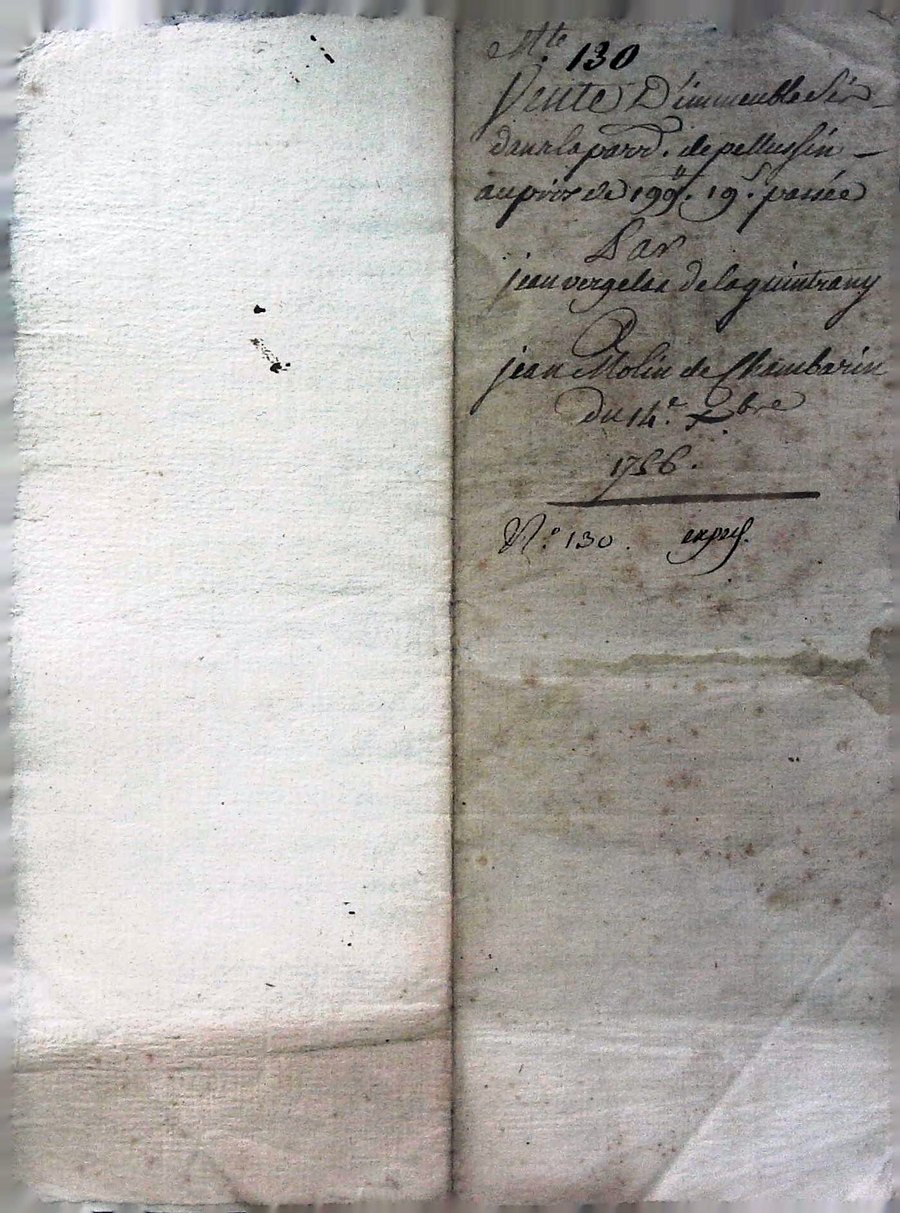 Mte 130
Vente D'immeuble Sis
dans la parr. de pellussin
au prix de 199ll. 19s. passée
Par
jean vergelas de laguintrany
à
jean Molin de Chambarin
du 14e. Xbre
1756.
N.o 130.